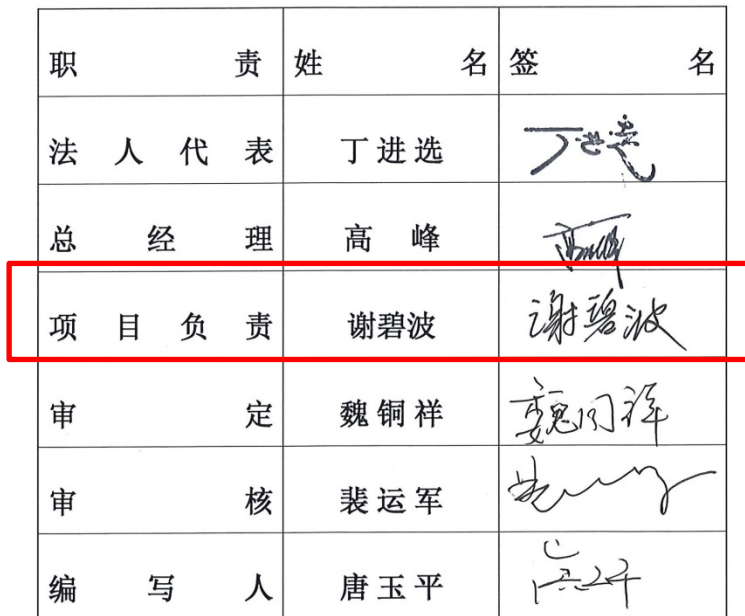 职责 姓名 签名
法人代表 丁进选 丁进选
总经理 高峰
项目负责 谢碧波 谢碧波
审定 魏铜祥 魏同祥
审核 裴运军
编写人 唐玉平